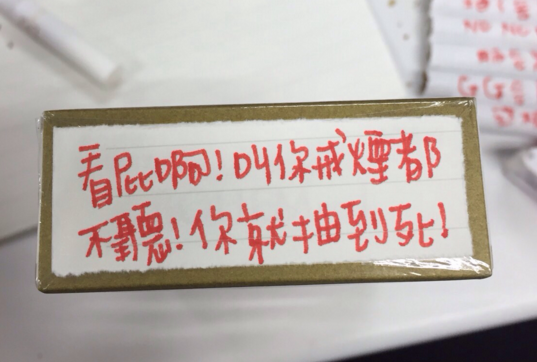 看屁啊!叫你戒煙都
不聽!你就抽到死!
NO NO
GG